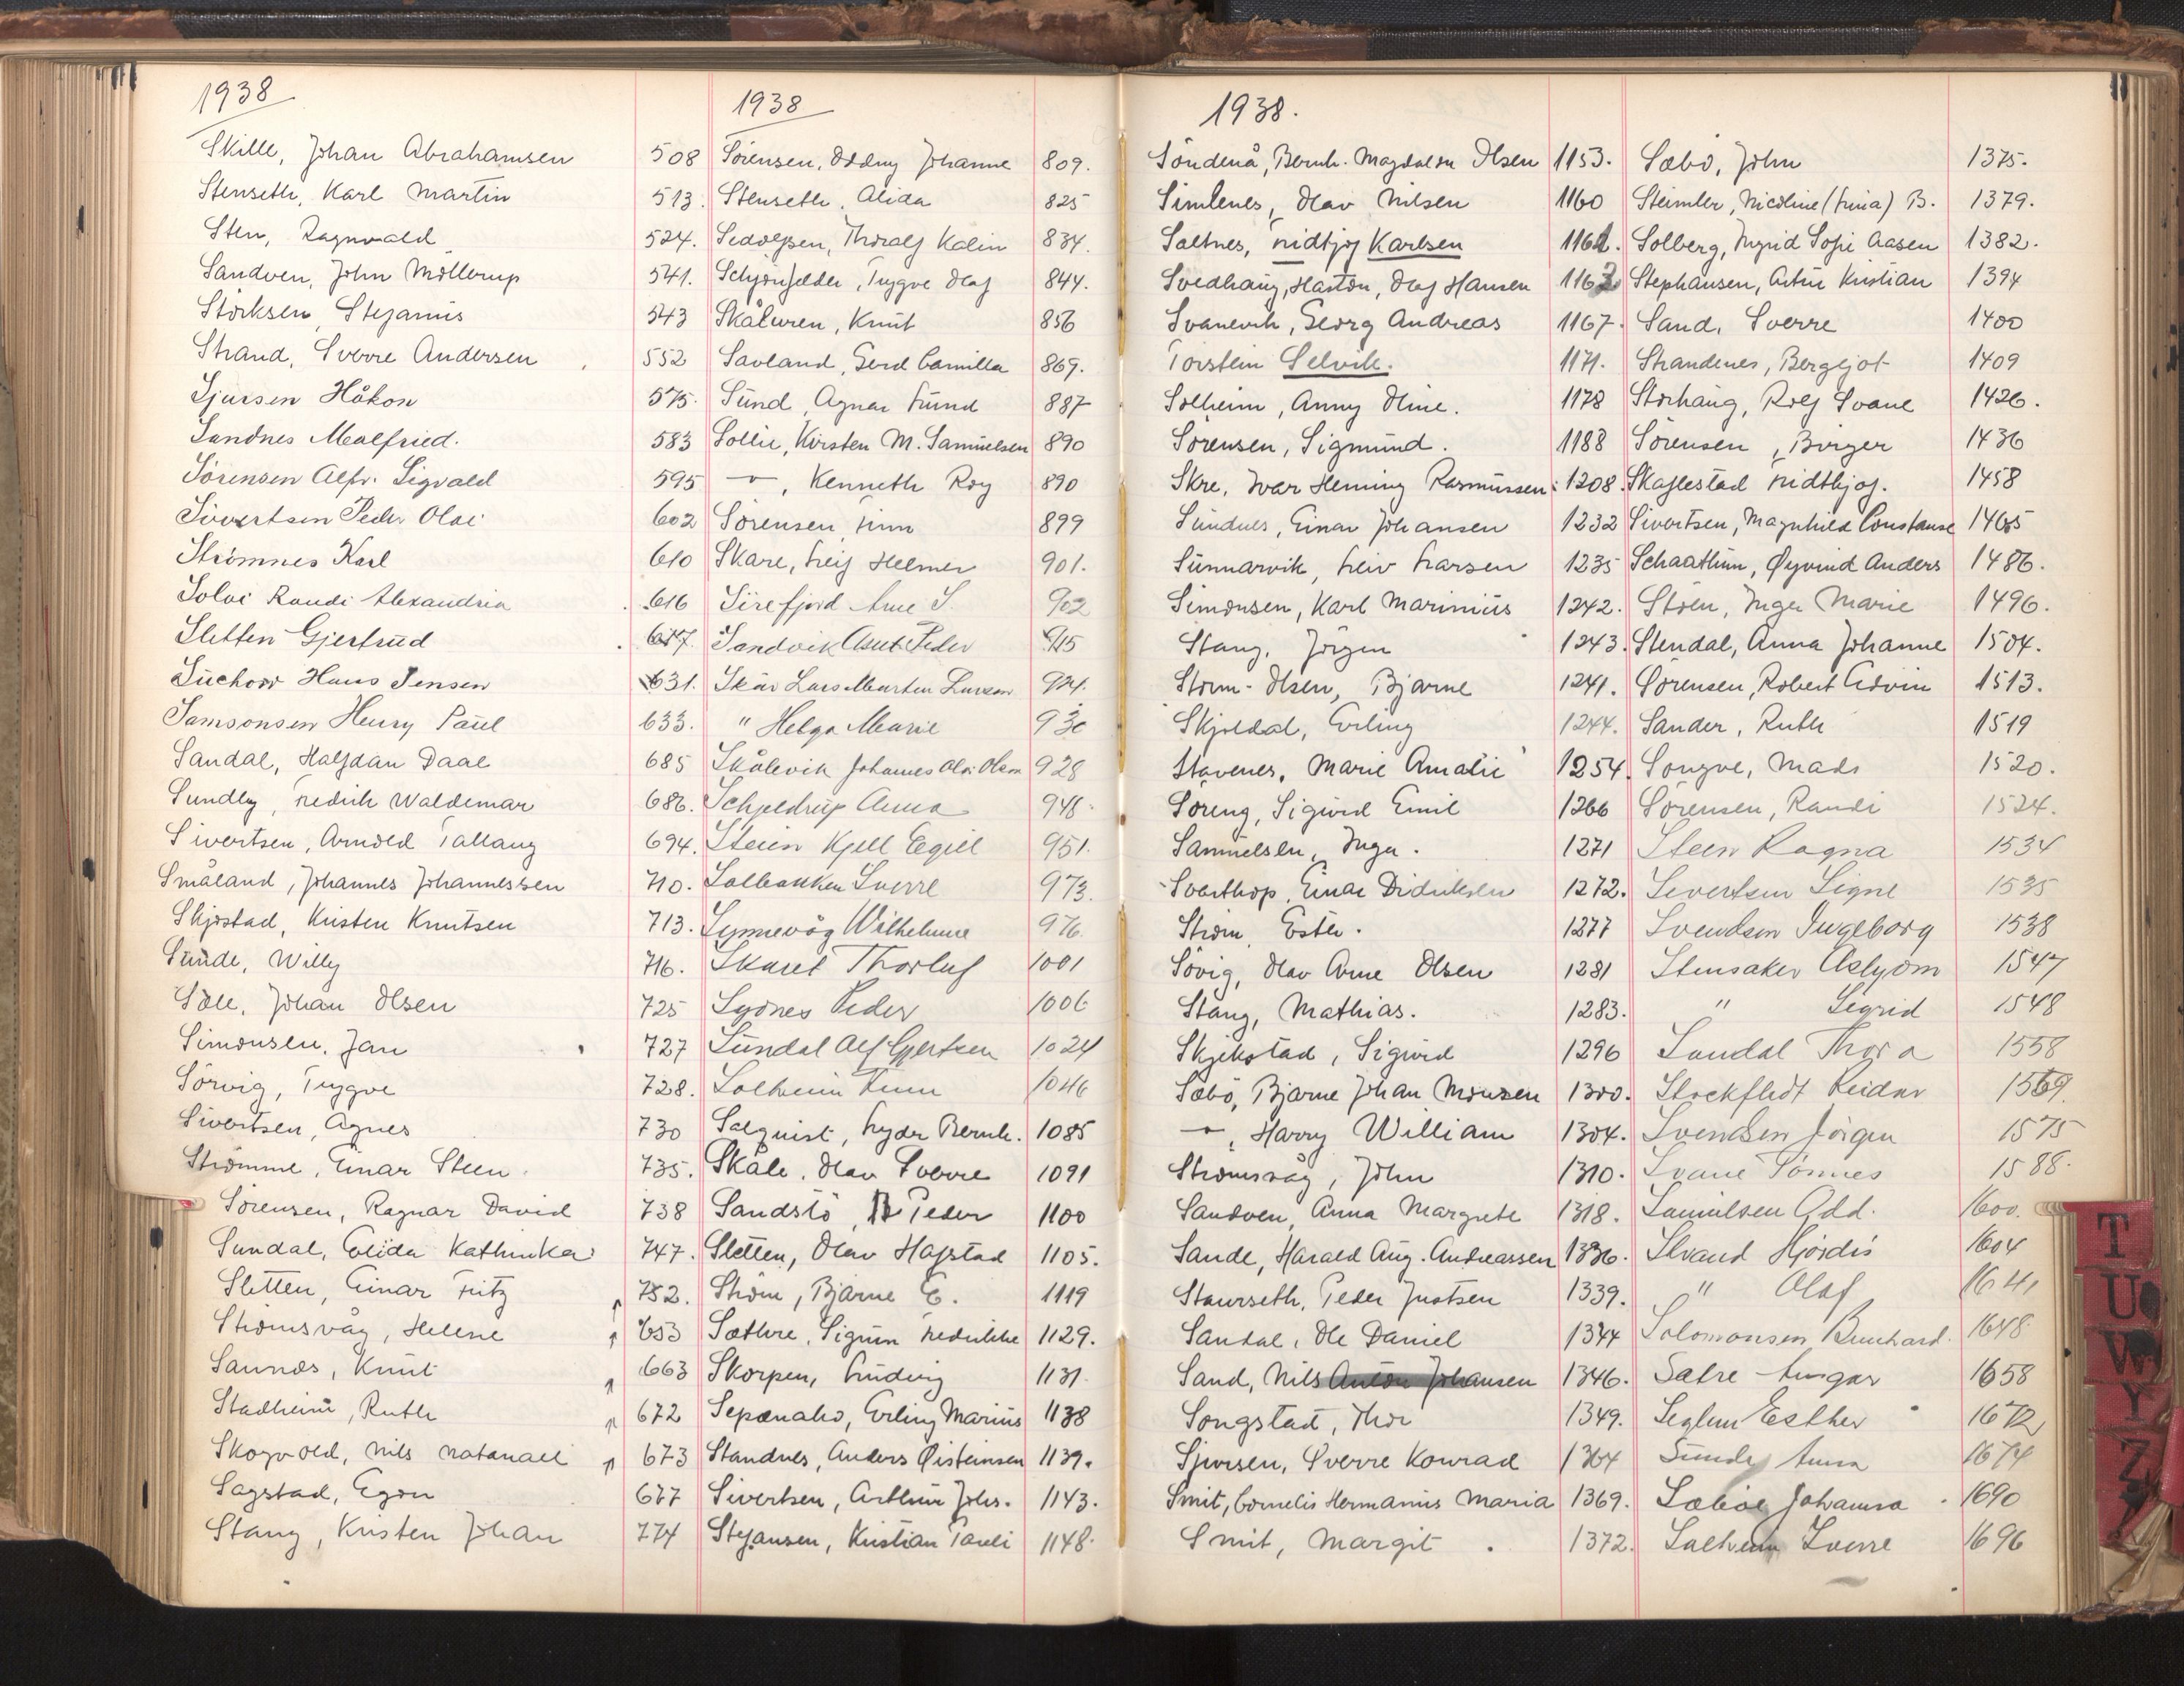 1938
Skille, Johan Abrahamsen 508
Stenseth, Karl Martin 513.
Sten, Ragnvald 524.
Sandven, John Möllerup 541.
Störksen, Stefanus 543
Strand, Sverre Andersen 552
Sjursen Håkon 575.
Sandnes Malfried. 583
Sörensen Alfr. Sigvald 595
Sivertsen Peder Olai 602
Strömnes Karl 610
Solvi Randi Alexandria 616
Sletten Gjertrud 617.
Suchow Hans Jensen 631.
Samsonsen Henry Paul 633.
Sandal, Halfdan Daae 685
Sundby, Fredrik Waldemar 686.
Sivertsen, Arnold Tallang 694.
Småland, Johannes Johannessen 710.
Skjostad, Kristen Knutsen 713.
Sunde, Willy 716.
Söll, Johan Olsen 725
Simonsen, Jan 727
Sörvig, Trygve 728.
Sivertsen, Agnes 730
Strömme, Einar Steen. 735.
Sörensen, Ragnar David 738
Sundal, Elida Kathinka 747.
Sletten, Einar Fritz 752.
Strömsvåg, Helene 653
Saunes, Knut 663
Stadheim, Ruth 672
Skogvold, Nils Natanael 673
Sagstad, Egon 677
Stang, Kristen Johan 774
1938
Sörensen, Oddny Johanne 809.
Stenseth, Alida 825
Sedolfsen, Thoralf Kalin 834.
Schjönfelder, Trygve Olaf 844.
Skåluren, Knut 856
Savland, Gerd Camilla 869.
Sund, Agnar Lund 887
Sollie, Kirsten M. Samuelsen 890
" , Kenneth Roy 890
Sörensen, Finn 899
Skare, Leif Helmer 901.
Sirefjord Arne S. 902
Sandvik Peder 915
Skår Lars Marten Larsen 924.
" Helga Marie 930
Skålevik Johannes Olai Olsen 928
Schjeldrup Anna 946
Steen Kjell Egill 951.
Solbakken Sverre 973.
Synnevåg Wilhelmine 976
Skaret Thorluf 1001
Sydnes Peder 1006
Sundal Alf Gjertsen 1024
Solheim Finn 1046
Salquist, Lyder Bernh. 1085
Skåle, Olav Sverre 1091
Sandstö, Peder 1100
Sletten, Olav Hafstad 1105.
Ström, Bjarne E. 1119
Sæthre, Sigrun Fredrikke 1129.
Skorpen, Ludvig 1131.
Sepanako, Erling Marius 1138
Standnes, Anders Øisteinsen 1139.
Sivertsen, Arthur Johs. 1143.
Stefansen, Kristian Pauli 1148.
1938.
Söndenå, Bernh. Magdalon Olsen 1153.
Simlenes, Olav Nilsen 1160
Saltnes, Fridtjof Karlsen 1161.
Svedhaug, Haston, Olaf Hansen 1163
Svanevik, Georg Andreas 1167.
Torstein Selvik. 1171.
Solheim, Anny Oline. 1178
Sörensen, Sigmund. 1188
Skre, Ivar Heming Rasmussen. 1208.
Sundnes, Einar Johansen 1232
Sunnarvik, Leiv Larsen 1235
Simonsen, Karl Marinius 1242.
Stang, Jörgen 1243.
Storm-Olsen, Bjarne 1241.
Skjoldal, Erling 1244.
Stavenes, Marie Amalie 1254.
Söreng, Sigurd Emil 1266
Samuelsen, Inga. 1271
Svarthop, Einar Didriksen 1272.
Ström, Ester. 1277
Sövig, Olav Arne Olsen 1281
Stang, Mathias. 1283.
Skjekstad, Sigurd 1296
Sæbö, Bjarne Johan Monsen 1300.
" , Harry William 1304.
Strömsvåg, John 1310.
Sandven, Anna Margrete 1318.
Sande, Harald Aug. Andreassen 1336.
Staurseth, Peder Justsen 1339.
Sandal, Ole Daniel 1344
Sand, Nils Anton Johansen 1346.
Songstad, Thor 1349.
Sjursen, Sverre Konrad 1364
Smit, Cornelis Hermanus Maria 1369.
Smit, Margit. 1372.
Sæbö, John 1375.
Steimler, Nicoline (Lina) B. 1379.
Solberg, Ingrid Sofie Aasen 1382.
Stephansen, Artur Kristian 1394
Sand, Sverre 1400
Strandenes, Bergljot 1409
Storhaug, Rolf Svane 1426.
Sörensen, Birger 1436
Skaflestad Fridthjof. 1458
Sivertsen, Magnhild Constanse 1465
Schaathun, Øyvind Anders 1486.
Stöen, Inger Marie 1496.
Stendal, Anna Johanne 1504.
Sörensen, Robert Edvin 1513.
Sander, Ruth 1519
Songve, Mads 1520.
Sörensen, Randi 1524.
Steen Ragna 1534
Severtsen Signe 1535
Svendsen Ingeborg 1538
Stensaker Asbjörn 1547
" Sigrid 1548
Sandal Thora 1558
Stockfledt Reidar 1569.
Svendsen Jörgen 1575
Svane Tönnes 1588.
Samuelsen Odd. 1600.
Strand Hjördis 1604
" Olaf 1641
Solomonsen Bernhard. 1648
Sætre Ansgar 1658
Seglem Esther 1672
Sunde Anna 1674
Sæböe Johanna 1690
Solheim Sverre 1696
T
U
W
Y
Z